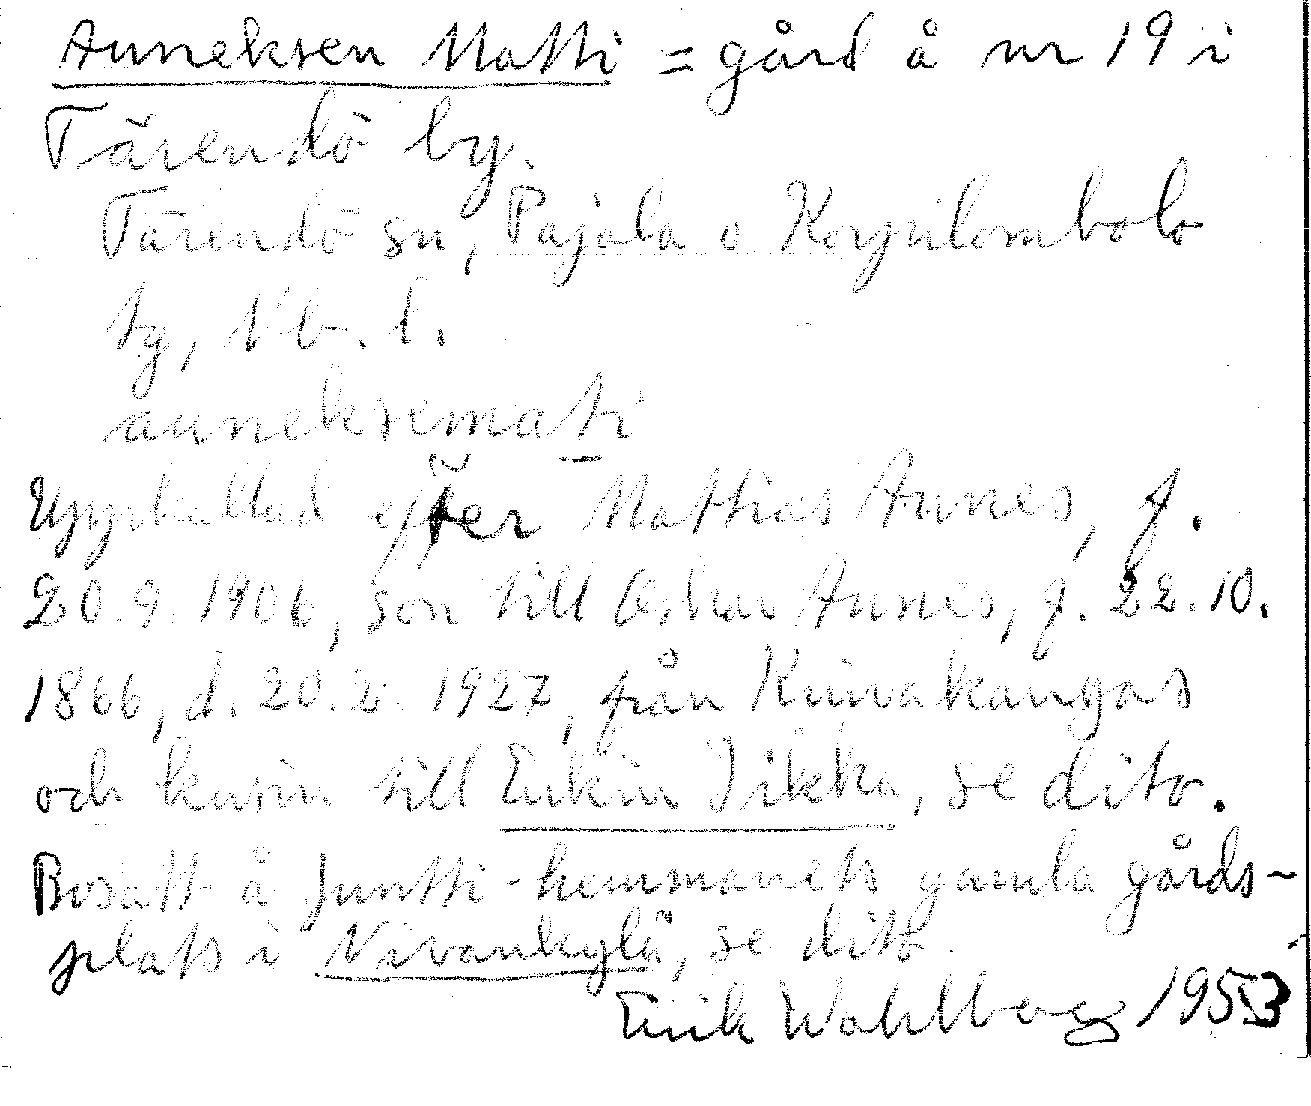 Anneksen Matti = gård å nr 19 i
Tärendö by.
Tärendö sn, Pajala o Korpilombolo
tg, Nb. l.
anneksemati
Uppkallad efter Mathias Annes, f.
20.9.1906, son till Oskar Annes, f. 22.10.
1866, d. 20.2.1927, från Kuivakangas
och kusin till Eukin Iikka, se dito.
Bosatt å Juntti-hemmanets gamla gårds-
plats i Nivankylä, se dito.
Erik Wahlberg 1953